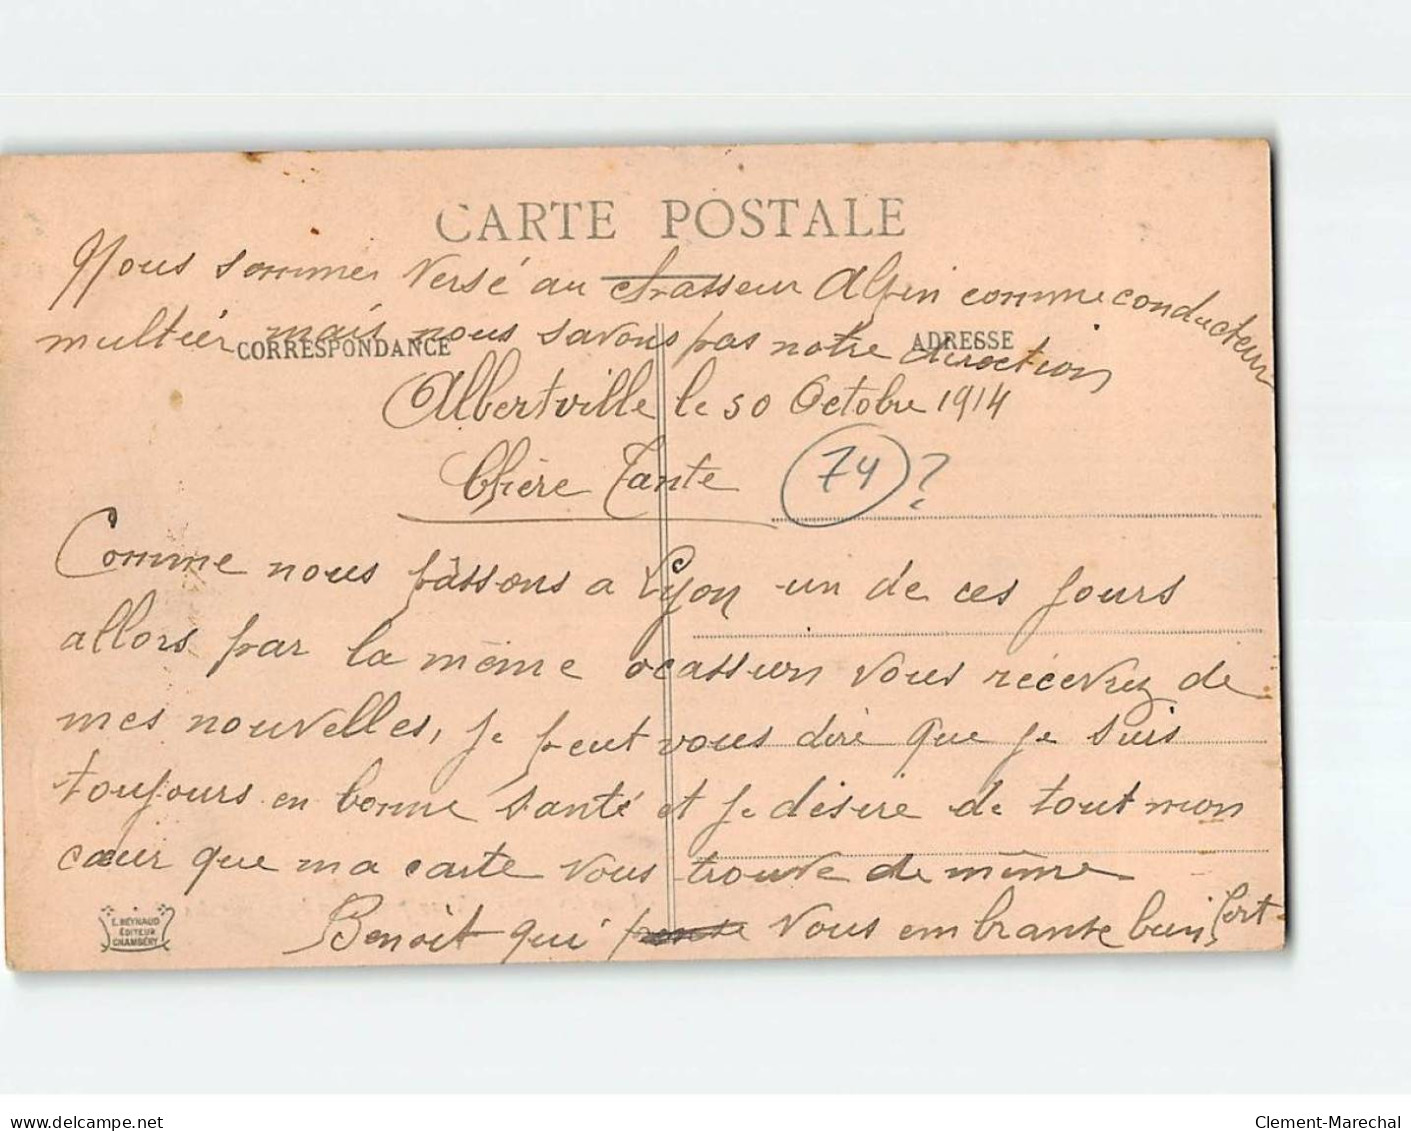 CARTE POSTALE
Nous sommes versé au chasseur Alpin comme conducteur
multier mais nous savons pas notre direction
CORRESPONDANCE
ADRESSE
Albertville le 30 Octobre 1914
Chère Tante
74 ?
Comme nous pàssons a Lyon un de ces jours
allors par la même ocassion vous récevrez de
mes nouvelles, je peut vous diré que je suis
toujours en bonne santé et je désire de tout mon
cœur que ma carte vous trouve de même
Benoit qui vous embrante bien fort
E. REYNAUD
ÉDITEUR
CHAMBÉRY
www.delcampe.net
Clement-Marechal